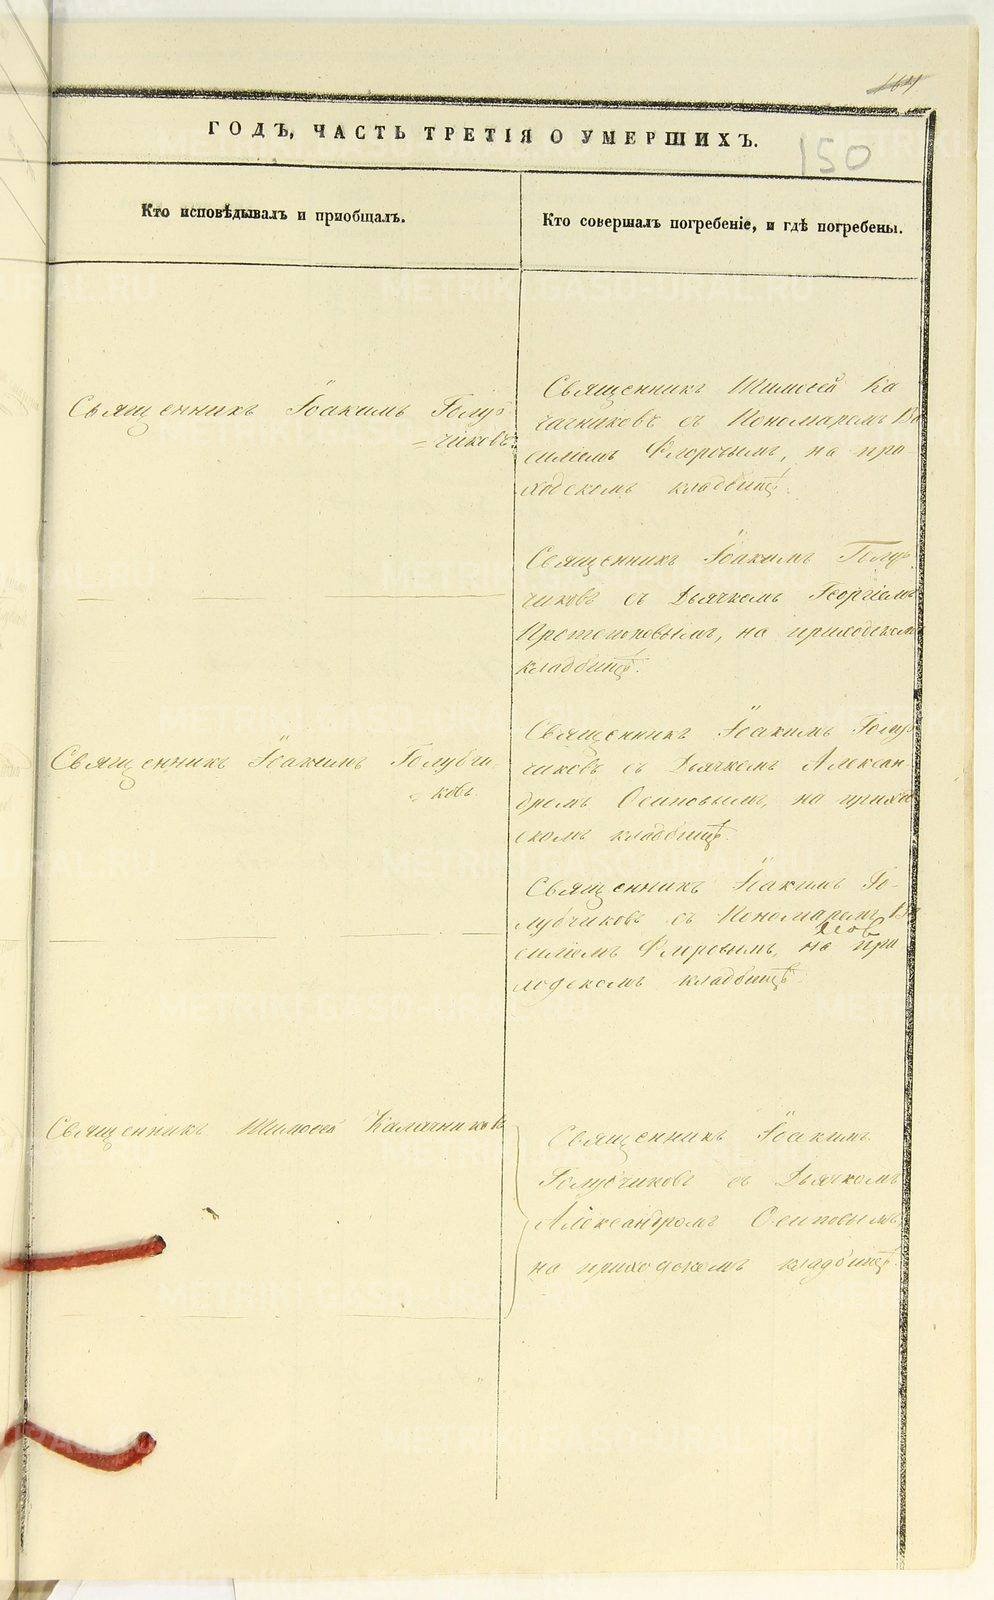 ГОДЪ, ЧАСТЬ ТРЕТІЯ О УМЕРШИХЪ.
150
Кто исповѣдывалъ и приобщалъ.
Кто совершалъ погребеніе, и гдѣ погребены.
Священникъ Іоакимъ Голуб
=чиковъ.
Священникъ Тимоѳей Ка
лачниковъ съ Пономаремъ Ва
силіемъ Флоровымъ, на при
ходскомъ кладбищѣ.
Священникъ Іоакимъ Голуб
чиковъ съ Дьячкомъ Георгіемъ
на приходскомъ
кладбищѣ.
Священникъ Іоакимъ Голубчи
=ковъ.
Священникъ Іоакимъ Голуб
чиковъ съ Дьячкомъ Алексан
дромъ Осиповымъ, на приход
скомъ кладбищѣ.
Священникъ Іоакимъ Го-
лубчиковъ съ Пономаремъ Ва
силіемъ Флоровымъ, на при
ходскомъ кладбищѣ.
Священникъ Тимоѳей Калачниковъ
Священникъ Іоакимъ
Голубчиковъ съ Дьячкомъ
Александромъ Осиповымъ,
на приходскомъ кладбищѣ.
METRIKI.GASO-URAL.RU